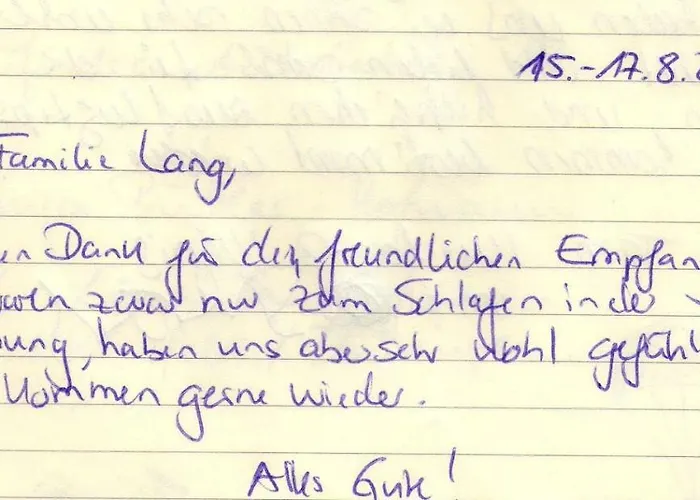 15.-17.8.
Familie Lang,
en Dank für den freundlichen Empfan
waren zwar nur zum Schlafen in der
ung, haben uns aber sehr wohl gefühl
kommen gerne wieder.
Alles Gute!